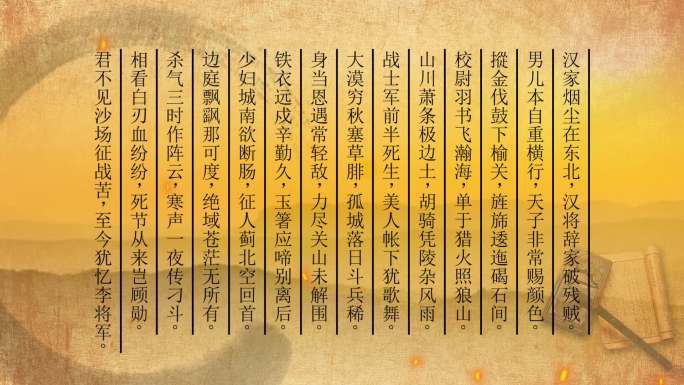 汉家烟尘在东北，汉将辞家破残贼。
男儿本自重横行，天子非常赐颜色。
摐金伐鼓下榆关，旌旆逶迤碣石间。
校尉羽书飞瀚海，单于猎火照狼山。
山川萧条极边土，胡骑凭陵杂风雨。
战士军前半死生，美人帐下犹歌舞。
大漠穷秋塞草腓，孤城落日斗兵稀。
身当恩遇常轻敌，力尽关山未解围。
铁衣远戍辛勤久，玉箸应啼别离后。
少妇城南欲断肠，征人蓟北空回首。
边庭飘飖那可度，绝域苍茫无所有。
杀气三时作阵云，寒声一夜传刁斗。
相看白刃血纷纷，死节从来岂顾勋。
君不见沙场征战苦，至今犹忆李将军。